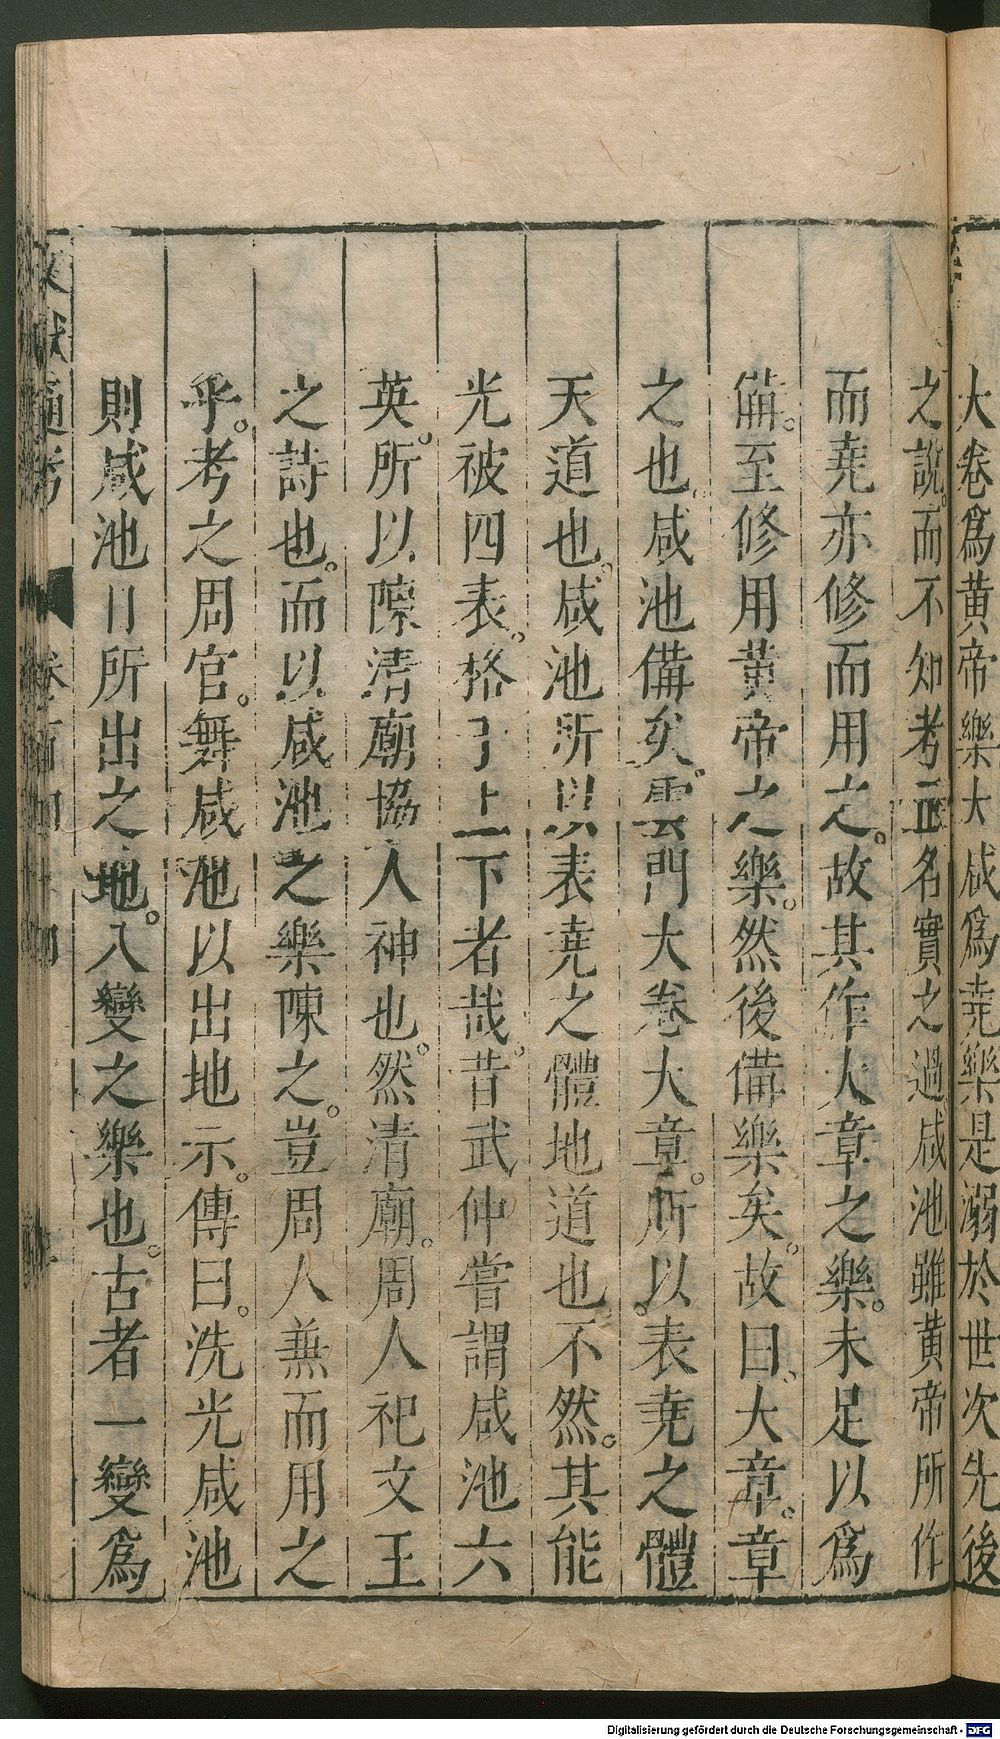 大卷爲黄帝樂大咸爲堯樂是溺於世次先後
之說。而不知考正名實之過咸池雖黄帝所作
而堯亦修而用之。故其作大章之樂。未足以爲
備。至修用黄帝之樂。然後備樂矣。故曰。大章。章
之也。咸池備矣。雲門大卷大章。所以表堯之體
天道也。咸池所以表堯之體地道也。不然。其能
光被四表。格于上下者哉。昔武仲嘗謂咸池六
英。所以隙清廟協人神也。然清廟。周人祀文王
之詩也。而以咸池之樂陳之。豈周人兼而用之
乎。考之周官。舞咸池以出地示。傳曰。洗光咸池
則咸池日所出之地。八變之樂也。古者一變爲
文獻通考 卷百四十四
Digitalisierung gefördert durch die Deutsche Forschungsgemeinschaft - DFG